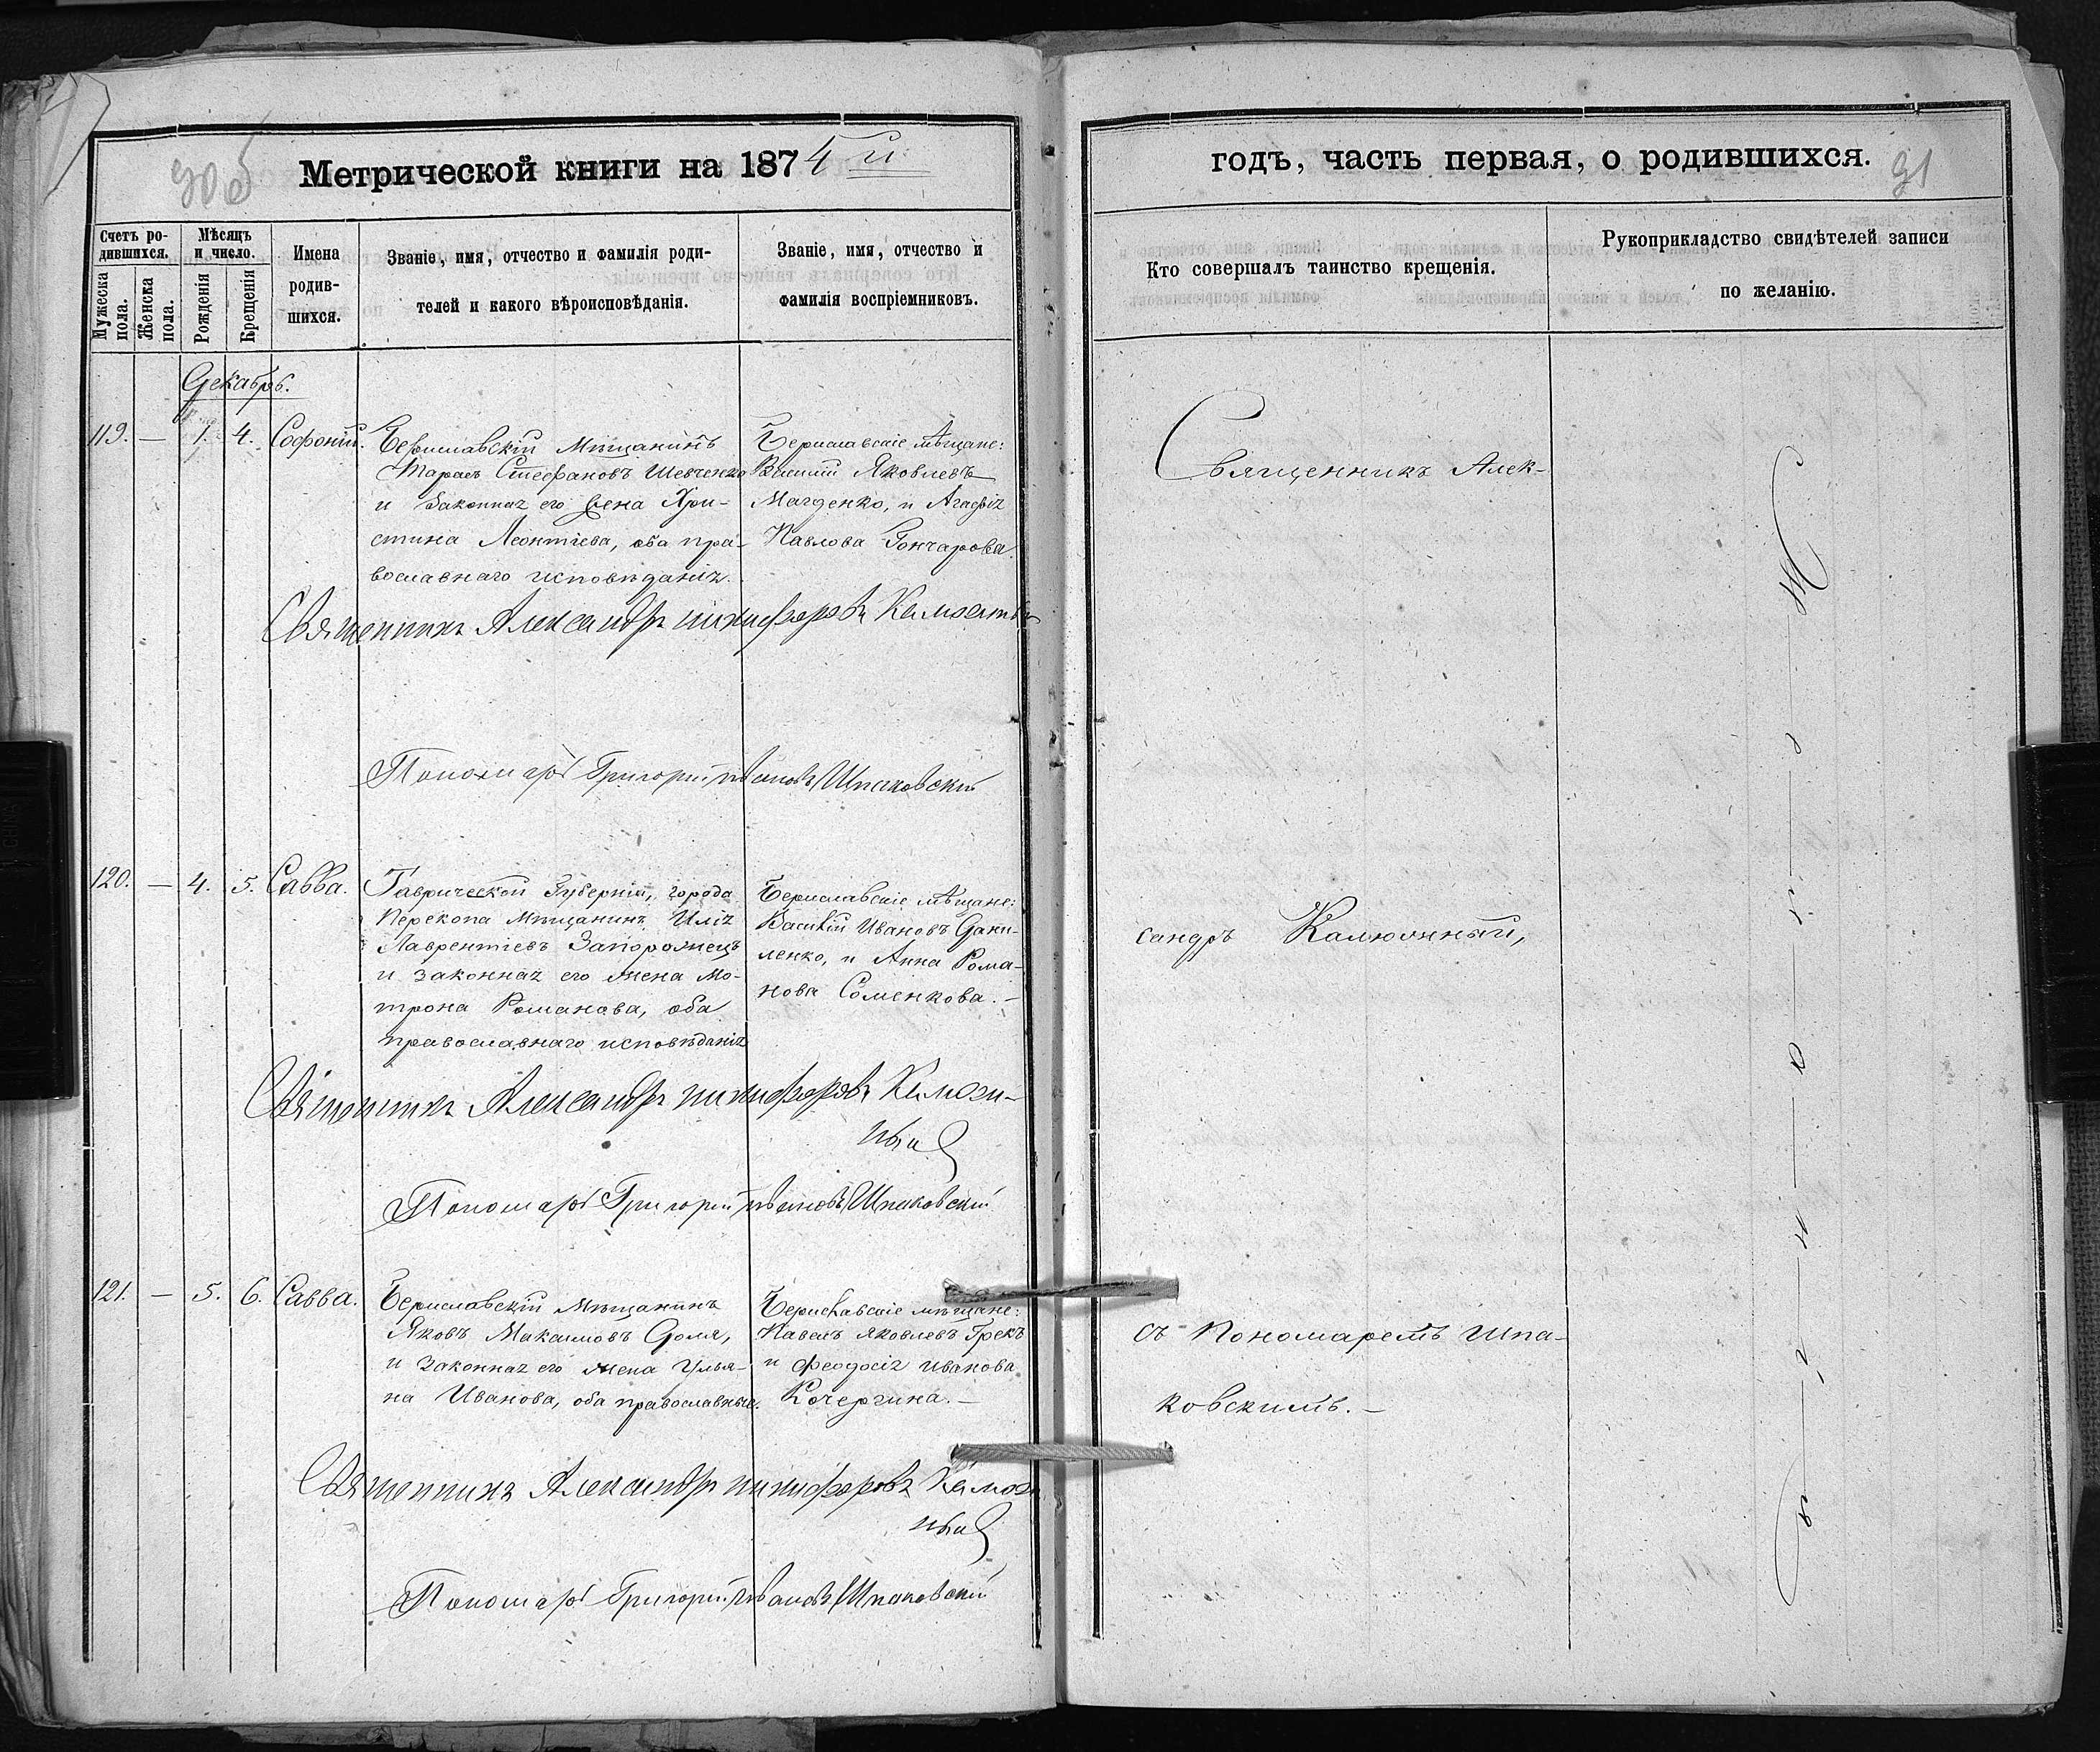 90об
Метрической книги на 1874й
Счетъ ро-
дившихся.
Мужеска
пола.
Женска
пола.
Мѣсяцъ
и число.
Рожденія
Крещенія
Имена
родив-
шихся.
Званіе, имя, отчество и фамилія роди-
телей и какого вѣроисповѣданія.
Званіе, имя, отчество и
фамилія воспріемниковъ.
Декабрь.
119. — 1. 4. Софоній.
Бериславскій Мѣщанинъ
Тарасъ Стефановъ Шевченко
и Законная его жена Хри-
стина Леонтіева, оба пра-
вославнаго исповѣданія.
Бериславскіе Мѣщане:
Василій Яковлевъ
Магденко, и Агафія
Павлова Гончарова.
Священникъ Александръ Никифоровъ
Пономарь Григорій Ивановъ Шпаковскій
120. — 4. 5. Савва.
Таврической Губерніи, города
Перекопа Мѣщанинъ Илія
Лаврентіевъ Запорожецъ
и законная его жена Мо-
трона Романова, оба
православнаго исповѣданія
Бериславскіе Мѣщане:
Василій Ивановъ Дани-
ленко, и Анна Рома-
нова Соменкова. —
Священникъ Александръ Никифоровъ
Пономарь Григорій Ивановъ Шпаковскій
121. — 5. 6. Савва.
Бериславскій Мѣщанинъ
Яковъ Максимовъ Дома,
и законная его жена Улья-
на Иванова, оба православные.
Бериславскіе мѣщане:
Павелъ Яковлевъ Грекъ
и Феодосія Иванова
Кочергина. —
Священникъ Александръ Никифоровъ
Пономарь Григорій Ивановъ Шпаковскій
годъ, часть первая, о родившихся.
91
Кто совершалъ таинство крещенія.
Рукоприкладство свидѣтелей записи
по желанію.
Священникъ Алек-
сандръ Калюжный,
съ Пономаремъ Шпа-
ковскимъ. —